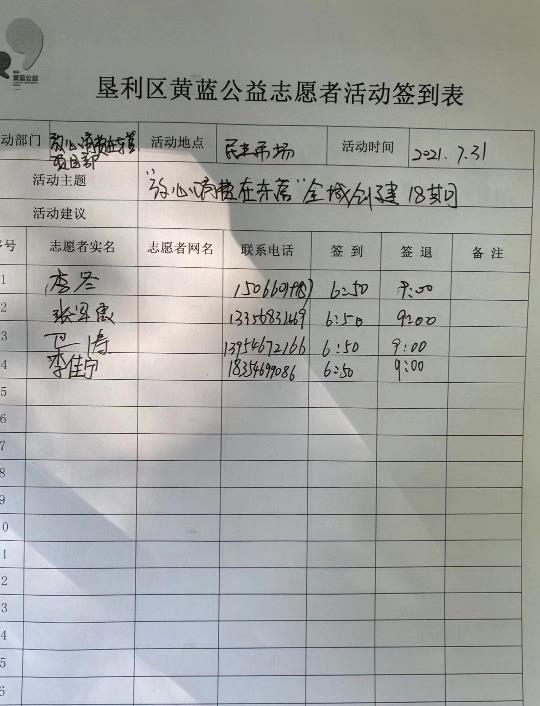 黄蓝公益
垦利区黄蓝公益志愿者活动签到表
动部门 放心消费在东营项目部 活动地点 民丰市场 活动时间 2021.7.31
活动主题 “放心消费在东营”全域创建18期
活动建议
序号 志愿者实名 志愿者网名 联系电话 签 到 签 退 备 注
1 李冬 6:50 9:00
2 13356831469 6:50 9:00
3 13954672166 6:50 9:00
4 李佳宁 18354699086 6:50 9:00
5
6
7
8
9
0
1
2
3
4
5
6